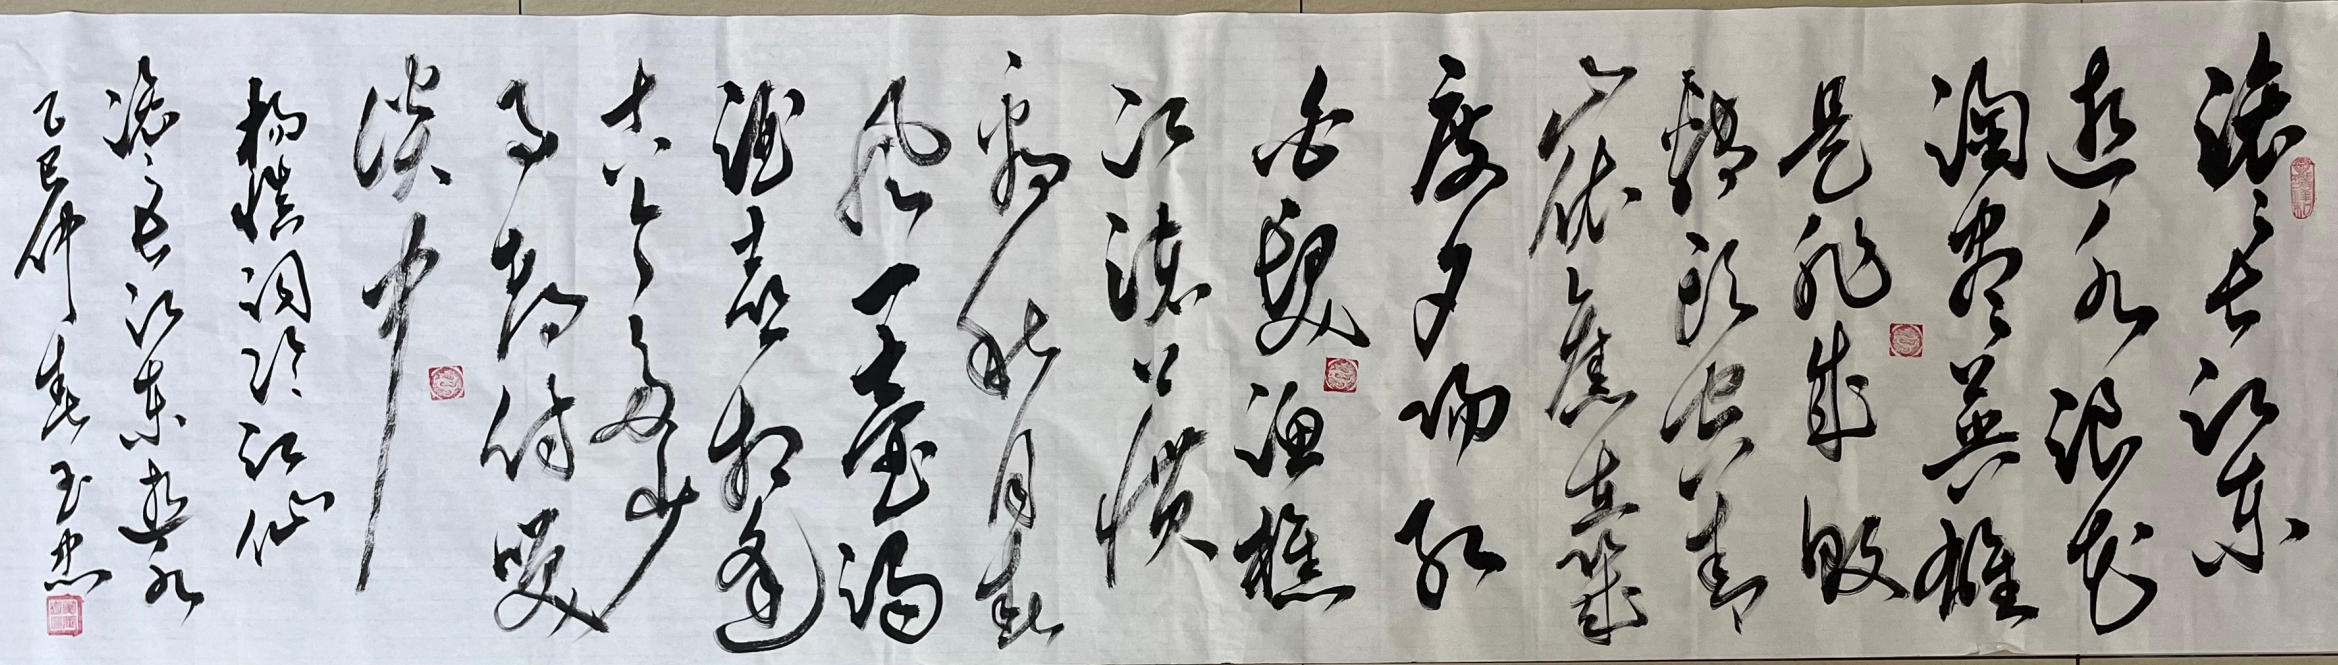 滚滚长江东
逝水浪花
淘尽英雄
是非成败
转头空青
山依旧在几
度夕阳红
白发渔樵
江渚上惯
看秋月春
风一壶浊
酒喜相逢
古今多少
事都付笑
谈中
杨慎词临江仙
滚滚长江东逝水
乙巳仲春玉忠